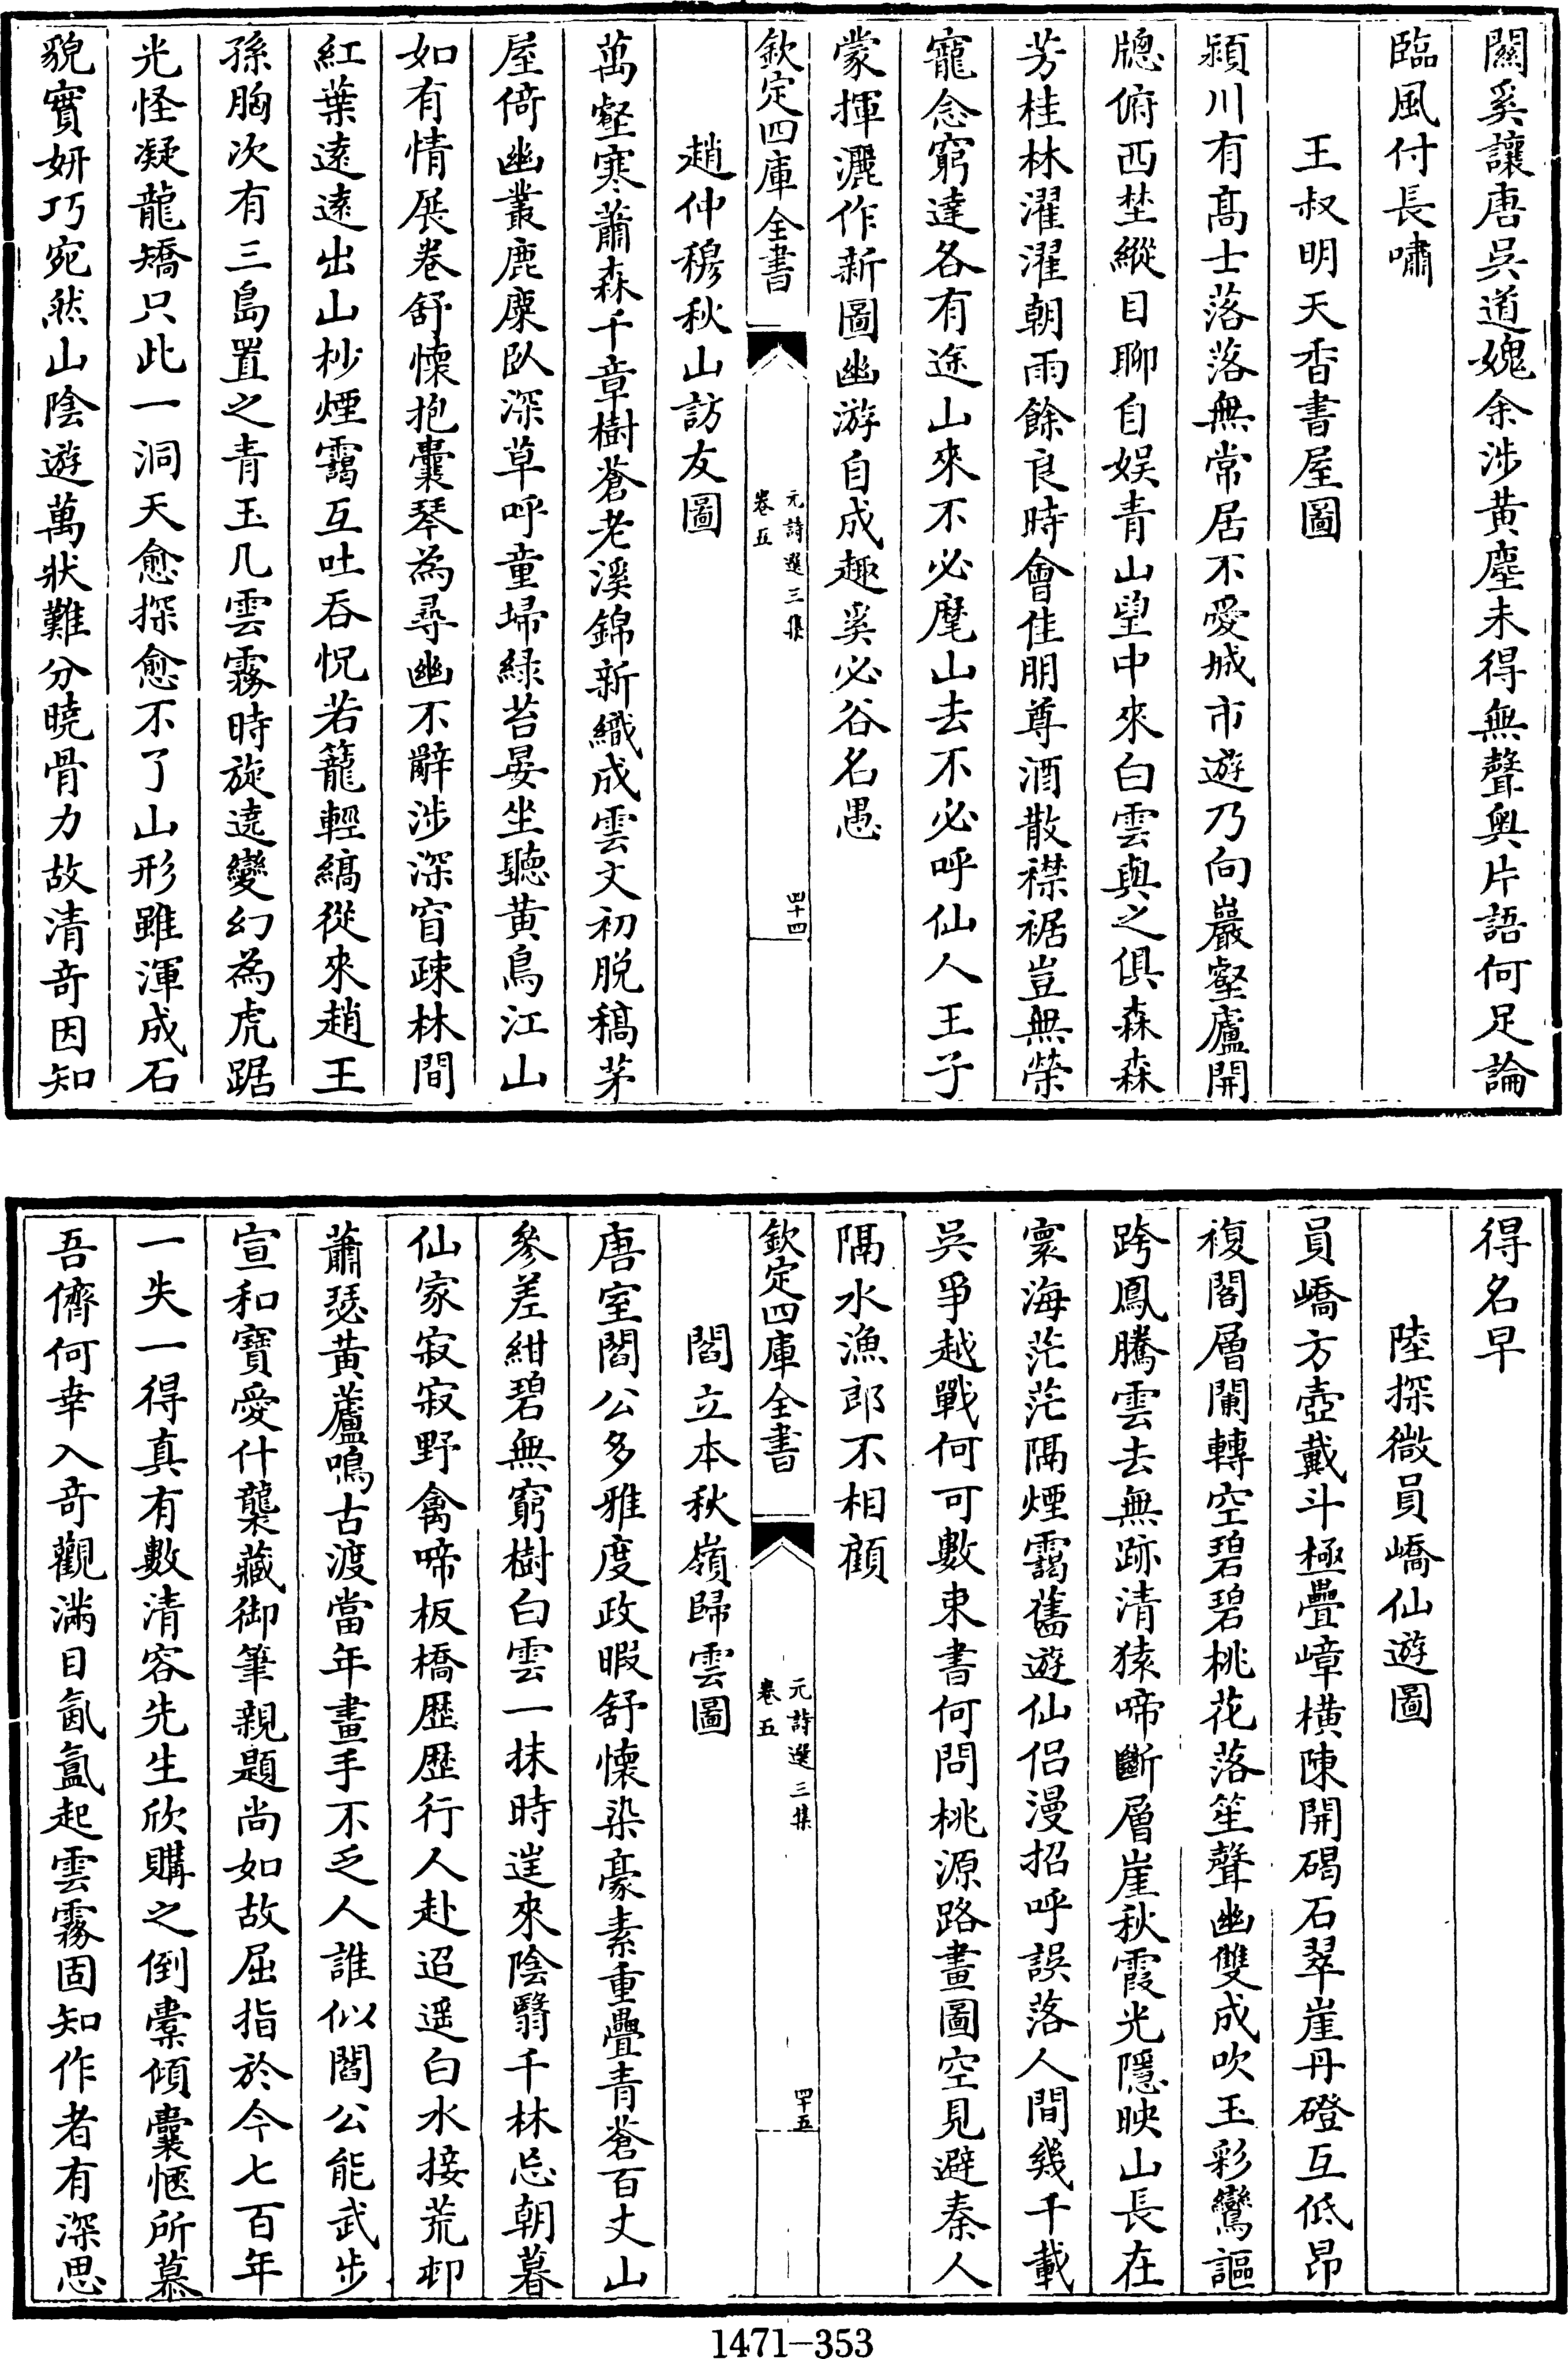 關奚讓唐吳道媿余涉黃塵未得無聲與片語何足論
臨風付長嘯
王叔明天香書屋圖
潁川有高士落落無常居不愛城市遊乃向巖壑廬開
牕俯西埜縱目聊自娱青山望中來白雲與之俱森森
芳桂林濯濯朝雨餘良時會佳朋尊酒散襟裾豈無榮
寵念窮達各有途山來不必麾山去不必呼仙人王子
蒙揮灑作新圖幽游自成趣奚必谷名愚
欽定四庫全書
元詩選三集
卷五
四十四
趙仲穆秋山訪友圖
萬壑寒蕭森千章樹蒼老溪錦新織成雲文初脱稿茅
屋倚幽叢鹿麋臥深草呼童埽綠苔晏坐聽黃鳥江山
如有情展卷舒懷抱囊琴為尋幽不辭涉深窅疎林間
紅葉遠遠出山杪煙靄互吐吞怳若籠輕縞從來趙王
孫胸次有三島置之青玉几雲霧時旋遶變幻為虎踞
光怪凝龍矯只此一洞天愈探愈不了山形雖渾成石
貌實妍巧宛然山陰遊萬狀難分曉骨力故清奇因知
得名早
陸探微員嶠仙遊圖
員嶠方壺戴斗極疊嶂橫陳開碣石翠崖丹磴互低昂
複閣層闌轉空碧碧桃花落笙聲幽雙成吹玉彩鸞謳
跨鳳騰雲去無跡清猿啼斷層崖秋霞光隱映山長在
寰海茫茫隔煙靄舊遊仙侶漫招呼誤落人間幾千載
吳爭越戰何可數束書何問桃源路畫圖空見避秦人
隔水漁郎不相顧
欽定四庫全書
元詩選三集
卷五
四十五
閻立本秋嶺歸雲圖
唐室閻公多雅度政暇舒懷染豪素重疊青蒼百丈山
參差紺碧無窮樹白雲一抹時逩來陰翳千林忘朝暮
仙家寂寂野禽啼板橋歷歷行人赴迢遥白水接荒邨
蕭瑟黃蘆鳴古渡當年畫手不乏人誰似閻公能武步
宣和寶愛什襲藏御筆親題尚如故屈指於今七百年
一失一得真有數清容先生欣購之倒橐傾囊愜所慕
吾儕何幸入奇觀滿目氤氳起雲霧固知作者有深思
1471-353